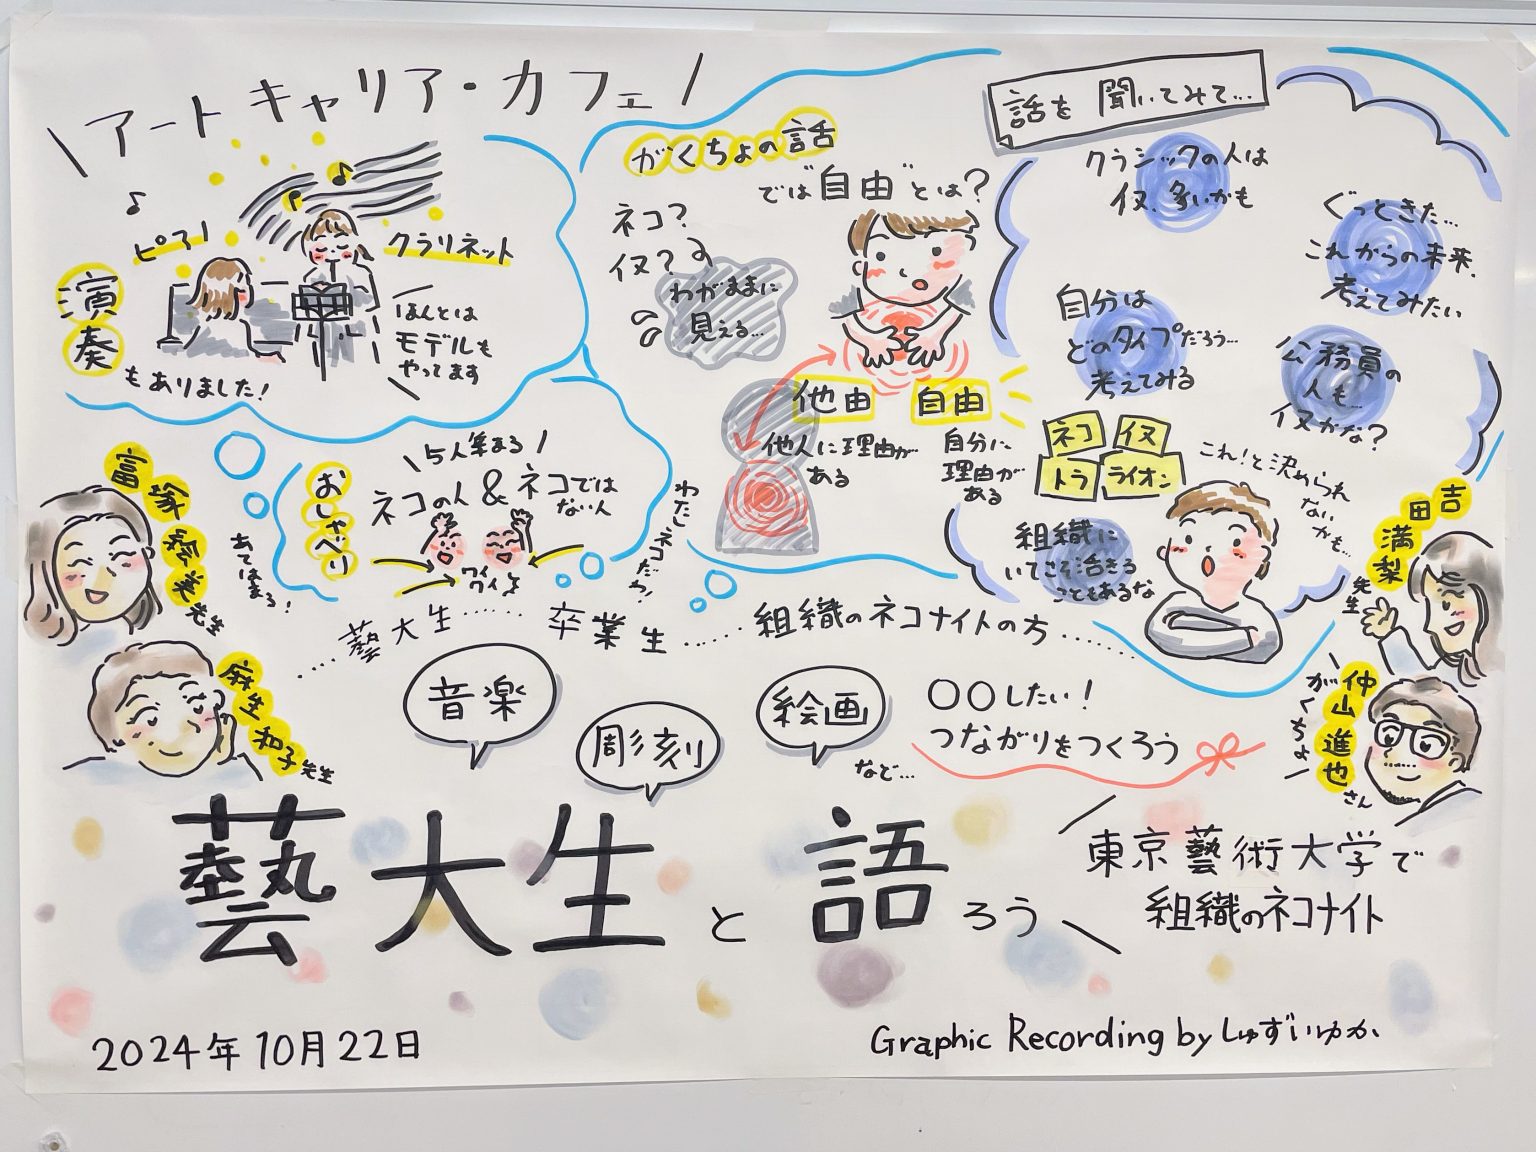 \アートキャリア・カフェ/
ピアノ
クラリネット
演奏
もありました!
ほんとは
モデルも
やってます
がくちょの話
では"自由"とは?
ネコ?
イヌ?
わがままに
見える…
他由
自由
他人に理由が
ある
自分に
理由が
ある
話を聞いてみて…
クラシックの人は
イヌ、多いかも
ぐっときた…
これからの未来、
考えてみたい
自分は
どのタイプだろう…
考えてみる
公務員の
人も…
イヌかな?
ネコ
イヌ
トラ
ライオン
これ!と決められ
ないかも…
組織に
いてこそ活きる
こともあるな
おしゃべり
\5人集まる/
ネコの人&ネコでは
ない人
ワイ
ワイ
わたしネコだわ!
あてはまる!
先生
麻生和子先生
吉田満梨先生
仲山進也さん
\がくちょ/
…藝大生……卒業生……組織のネコナイトの方……
音楽
彫刻
絵画
など…
〇〇したい!
つながりをつくろう
藝大生と語ろう
東京藝術大学で
組織のネコナイト
2024年10月22日
Graphic Recording by しゅずいゆか